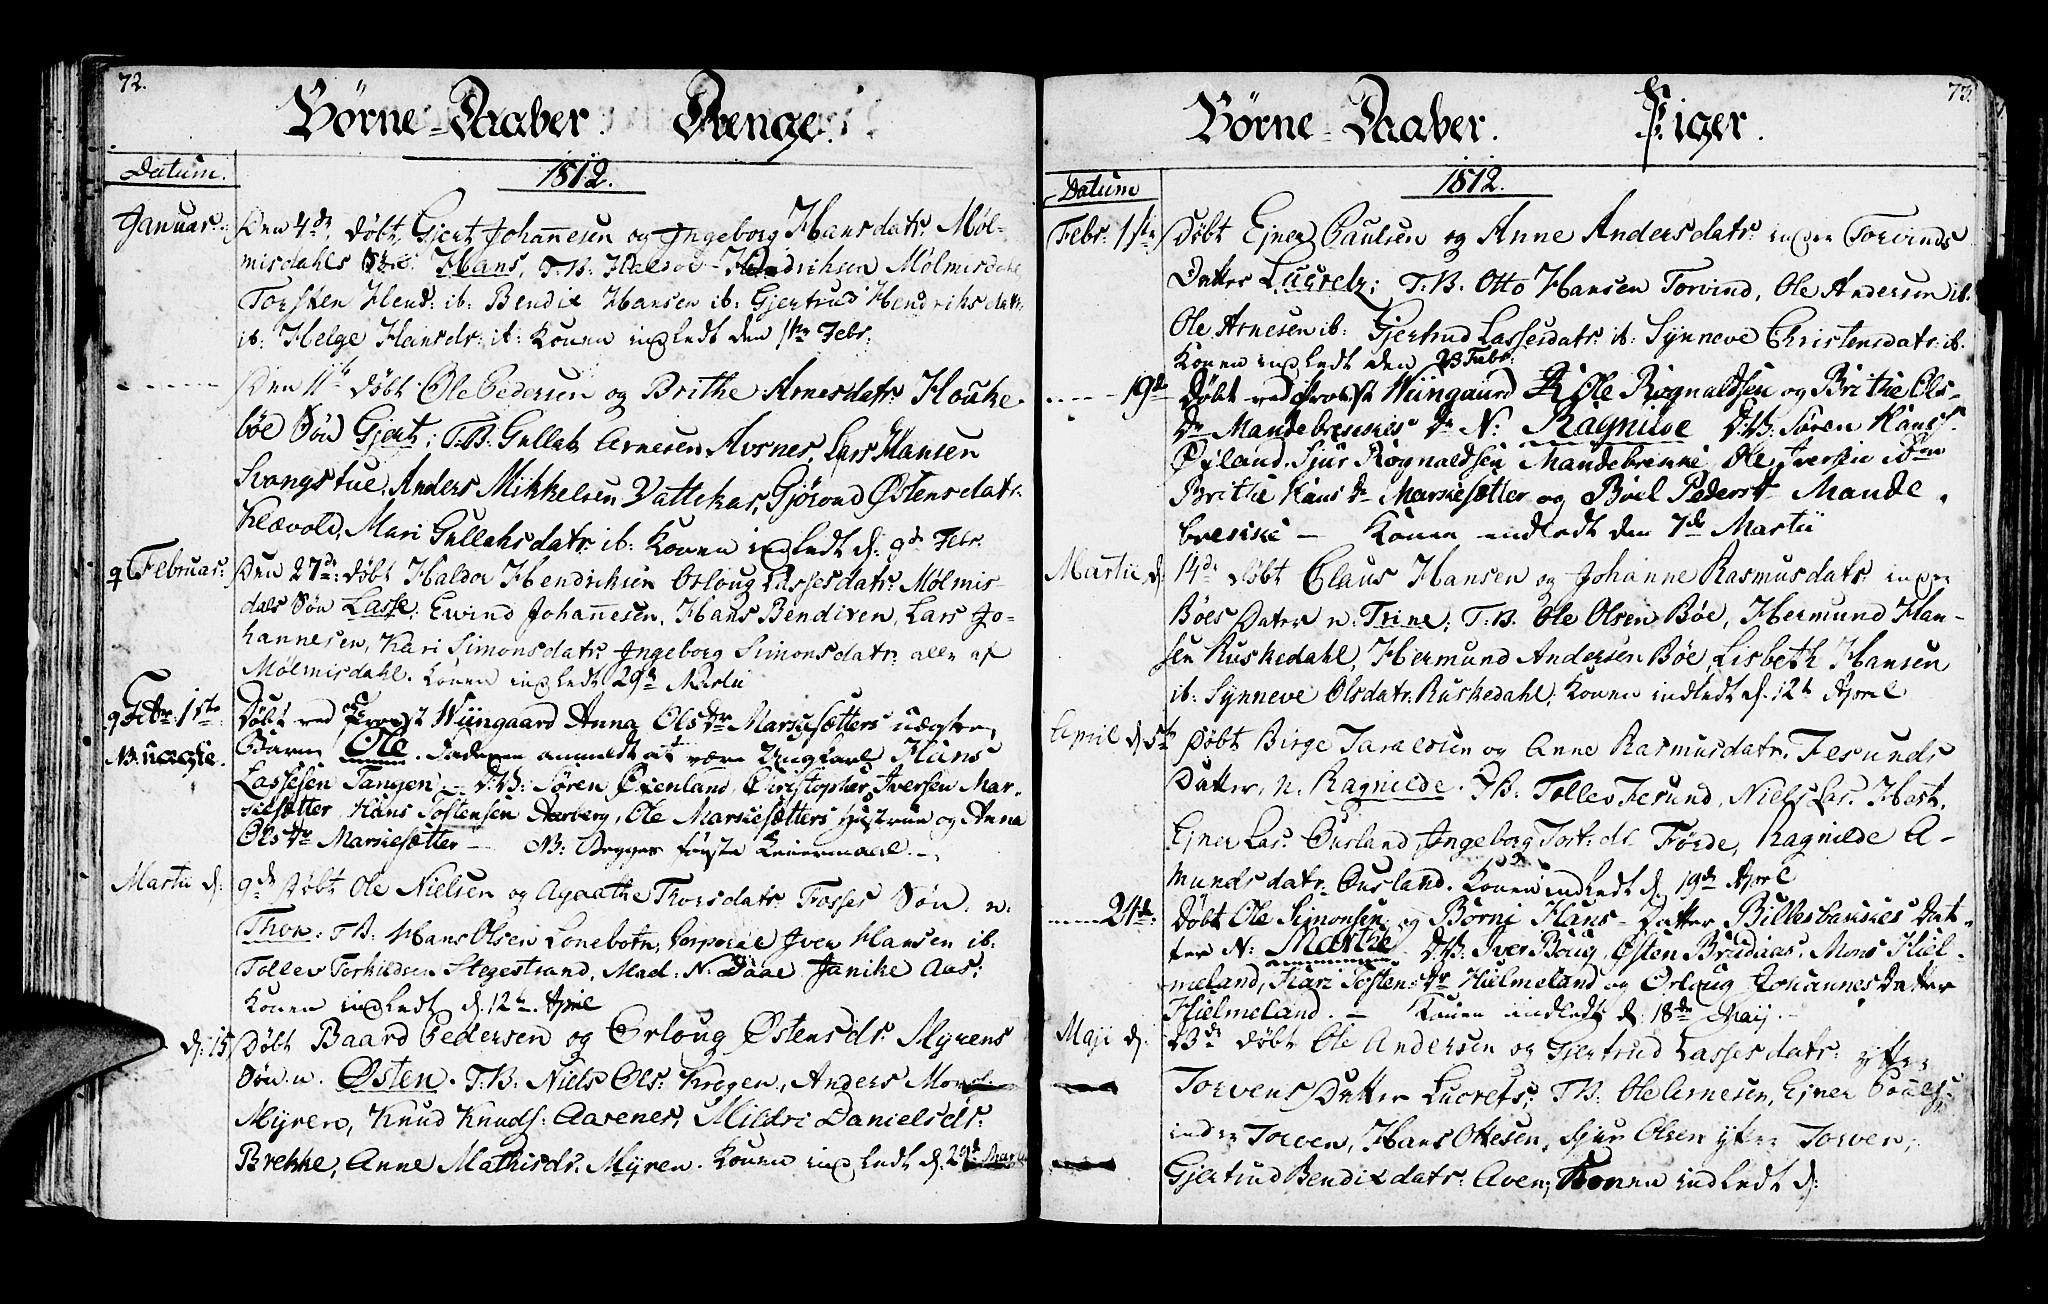 72.
Börne-Daaber. Drenge.
Datum.
1812.
Januar: Den 4de døbt Gjert Johannesen og Ingeborg Hansdatr: Møl-
misdahls Søn Hans, T.B. Haldor Hendrichsen Mølmisdahl
Torsten Hend: ib: Bendix Hansen ib: Gjertrud Hendriksdatr:
ib: Helge Hansdr: ib: Konen indledt den 1ste Febr:
Den 11te døbt Ole Pedersen og Brithe Arnesdatr: Houke-
bøe Søn Gjert; T.B. Gullak Arnesen Avsnes, Lars Hansen
Svangstue, Anders Mikkelsen Vattekar, Gjørond Østensdatr:
Klævold, Mari Gullaksdatr: ib: Konen indledt d: 9de Febr:
9 Februar: Den 27de: døbt Haldor Hendriksen Orloug Lassesdatr: Mølmis-
dals Søn Lasse; Ewind Johannesen, Hans Bendixen, Lars Jo-
hannesen, Kari Simonsdatr: Ingeborg Simonsdatr: alle af
Mølmisdahl. Konen indledt 29de Martii
9 Febr. 1ste Døbt ved Provst Wiingaard Anna Ols Dr Marsiesætters uægte
NB. uægte. Barn Ole. Faderen anmeldt at være Ungkarl Hans
Lassesen Tangen — T.B: Søren Øienland, Christopher Iversen Mar-
siesætter, Hans Tostensen Aarberg, Ole Marsiesætters Hustrue og Anna
Ols Dr Marsiesætter — NB: Begges første Leiermaal.—
Martii d: 9de døbt Ole Nielsen og Agaathe Thorsdatr: Fosses Søn n:
Thor: T.B: Hans Olsen Lonebotn, Corporal Iver Hansen ib:
Tollev Torkildsen Stegestrand, Mad: N. Daae, Janike Aas;
Konen indledt d: 12te April
d: 15 Døbt Baard Pedersen og Orloug Østensdr: Myrens
Søn n. Østen. T.B: Niels Ols: Krogen, Anders Mons:
Myren, Knud Knuds: Aarenes, Mildri Danielsdr:
Brekke, Anne Mathisdr: Myren. Konen indledt d. 29de Martii
73.
Börne-Daaber. Piger.
Datum
1812.
Febr: 1ste Døbt Ejner Paulsen og Anne Andersdatr: indre Torvinds
Datter Lucretz; T.B. Otto Hansen Torvind, Ole Andersen ib:
Ole Arnesen ib: Gjertrud Lassesdatr: ib: Synneve Christensdatr: ib.
Konen indledt den 23 Febr:
19de Døbt ved Provst Wiingaard Ole Rognaldsen og Brithe Ols-
Dr Mandebreskes Dr N: Ragnilde T.B: Søren Hans:
Øyland, Sjur Rognaldsen Mandebreske, Ole Iversen
Brithe Hans Dr Marsiesætter og Boel Peders Dr Mande-
breske — Konen indledt den 7de Martii
Martii d: 14de døbt Claus Hansen og Johanne Rasmusdatr: indre
Bøes Dater n: Trine; T.B. Ole Olsen Bøe, Hermund Han-
sen Ruskedahl, Hermund Andersen Bøe, Lisbeth Hansen
ib: Synneve Olsdatr: Ruskedahl, Konen indledt d. 12te April
April d 5te Døbt Birge Taraldsen og Anne Rasmusdatr: Fesunds
Datter, n. Ragnilde. T.B: Tollev Fesund, Niels Las: Hest,
Ejner Las: Ousland, Ingeborg Tost: dr Förde, Ragnilde A-
mundsdatr: Ousland. Konen indledt d. 19de April
24de: Døbt Ole Simonsen og Börni Hans-Datter Billesbaukes Dat-
ter N: Marthe T.B: Iver Boug, Østen Brudaas, Mons Hiel-
meland, Kari Tostens Dr Hielmeland og Orloug Johannes Datter
Hielmeland. — Konen indledt d: 18de Maij.
Maji d. 3de døbt Ole Andersen og Gjertrud Lassesdatr: ytre
Torvens Datter Lucrets; T.B: Ole Arnesen, Ejner Pouels:
indre Torven, Hans Ottesen, Sjur Olsen ytre Torven,
Gjertrud Bendixdatr: Aven; Konen indledt d: